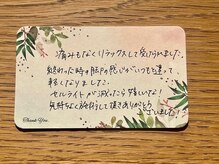 痛みもなくリラックスして受けられました。
終わった時の脚の感じがいつもと違って
軽くなりました。
セルライトが減ったら嬉しいな!
気持ちよく施術して頂きありがとう
ございました!
Thank You